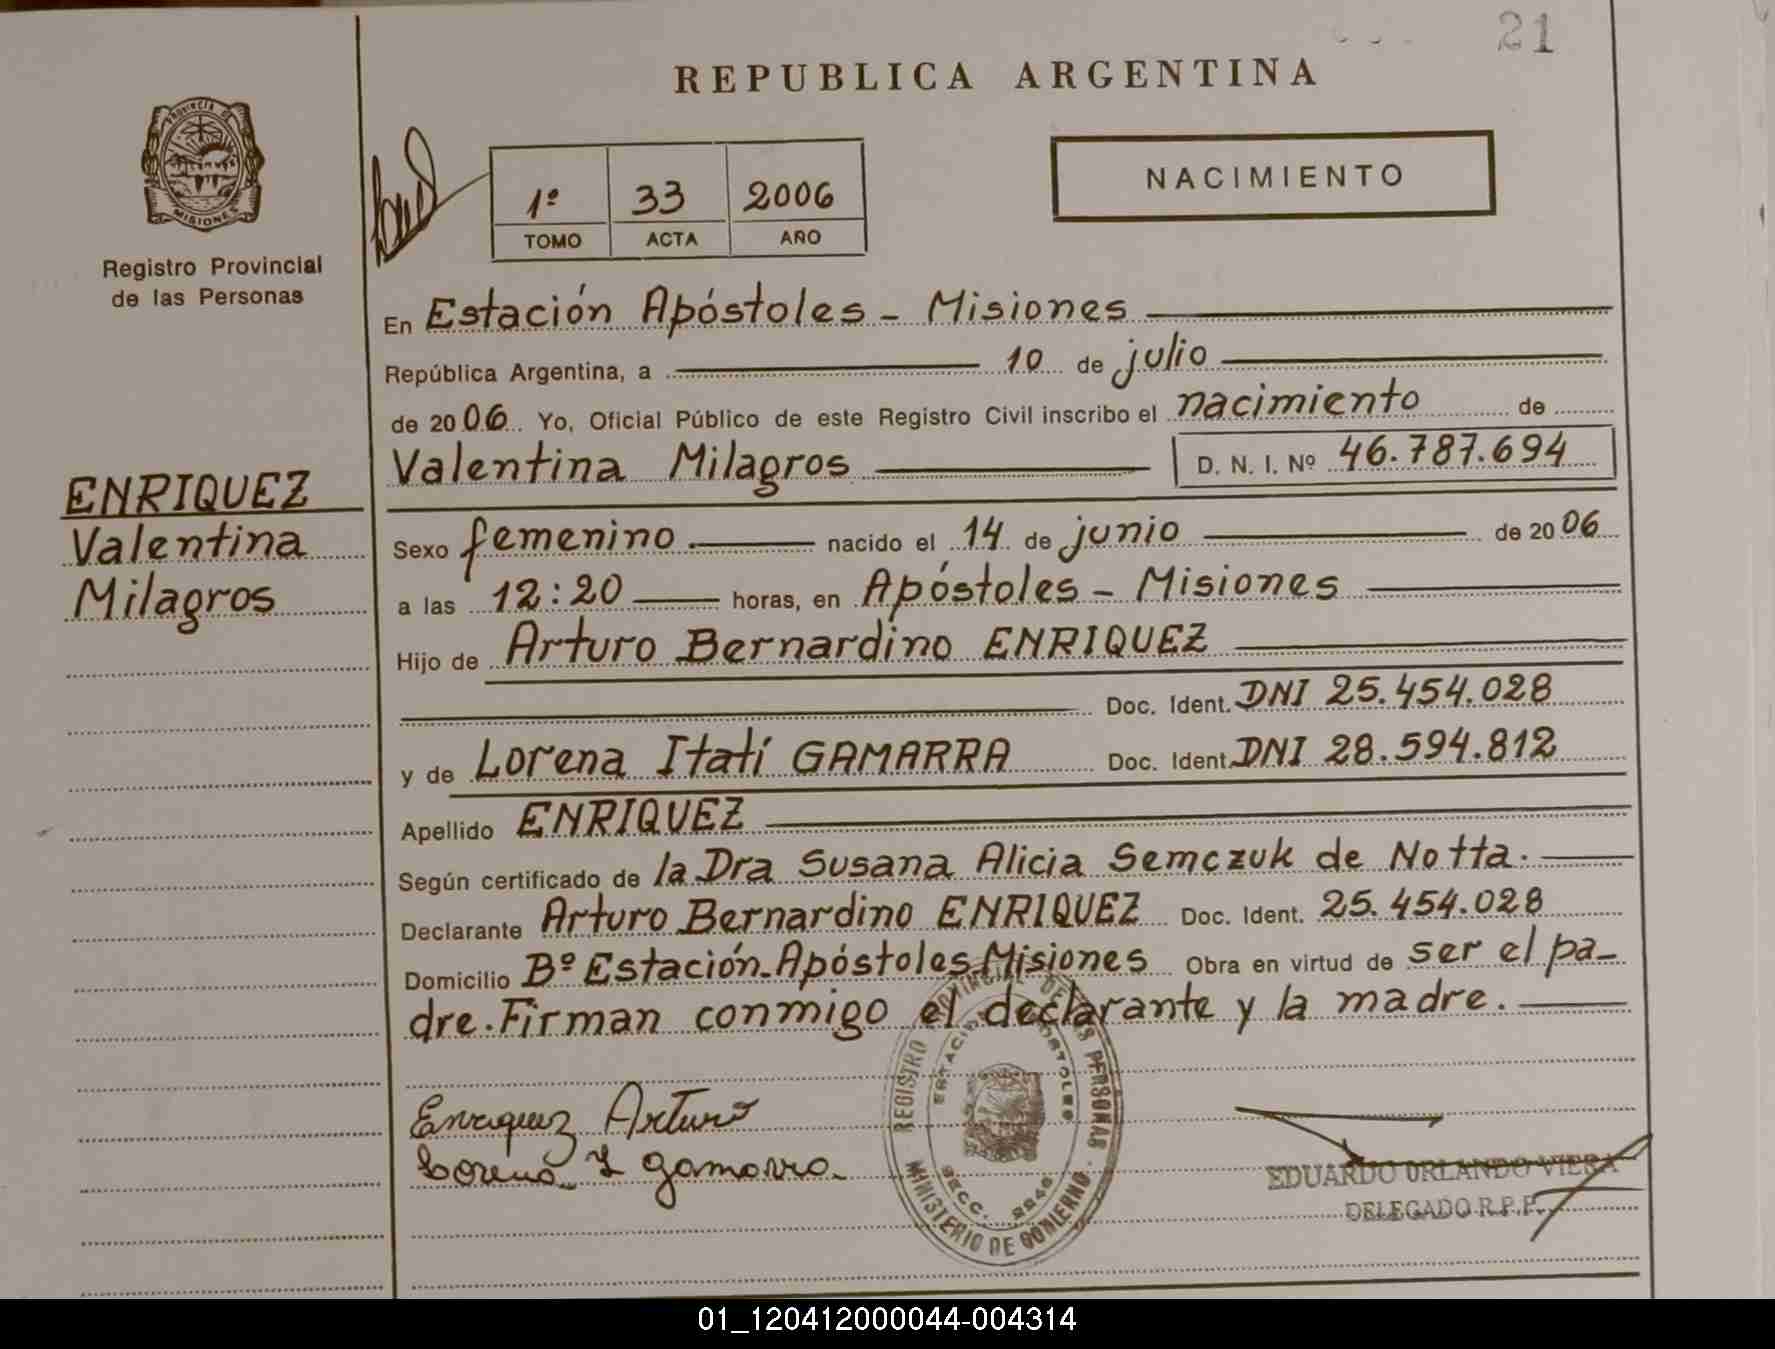 21
REPUBLICA ARGENTINA
PROVINCIA DE
MISIONES
Registro Provincial
de las Personas
1º 33 2006
TOMO ACTA AÑO
NACIMIENTO
En Estación Apóstoles - Misiones
República Argentina, a 10 de julio
de 2006 Yo, Oficial Público de este Registro Civil inscribo el nacimiento de
Valentina Milagros D. N. I. Nº 46.787.694
ENRIQUEZ
Valentina
Milagros
Sexo femenino nacido el 14 de junio de 2006
a las 12:20 horas, en Apóstoles - Misiones
Hijo de Arturo Bernardino ENRIQUEZ
Doc. Ident. DNI 25.454.028
y de Lorena Itatí GAMARRA Doc. Ident. DNI 28.594.812
Apellido ENRIQUEZ
Según certificado de la Dra Susana Alicia Semczuk de Notta.
Declarante Arturo Bernardino ENRIQUEZ Doc. Ident. 25.454.028
Domicilio Bº Estación-Apóstoles-Misiones Obra en virtud de ser el pa-
dre. Firman conmigo el declarante y la madre.
REGISTRO PROVINCIAL DE LAS PERSONAS
ESTACION APOSTOLES
SECC. 2246
MINISTERIO DE GOBIERNO
Enriquez Arturo
Lorena I gamarra
EDUARDO ORLANDO VIERA
DELEGADO R.P.P.
01_120412000044-004314